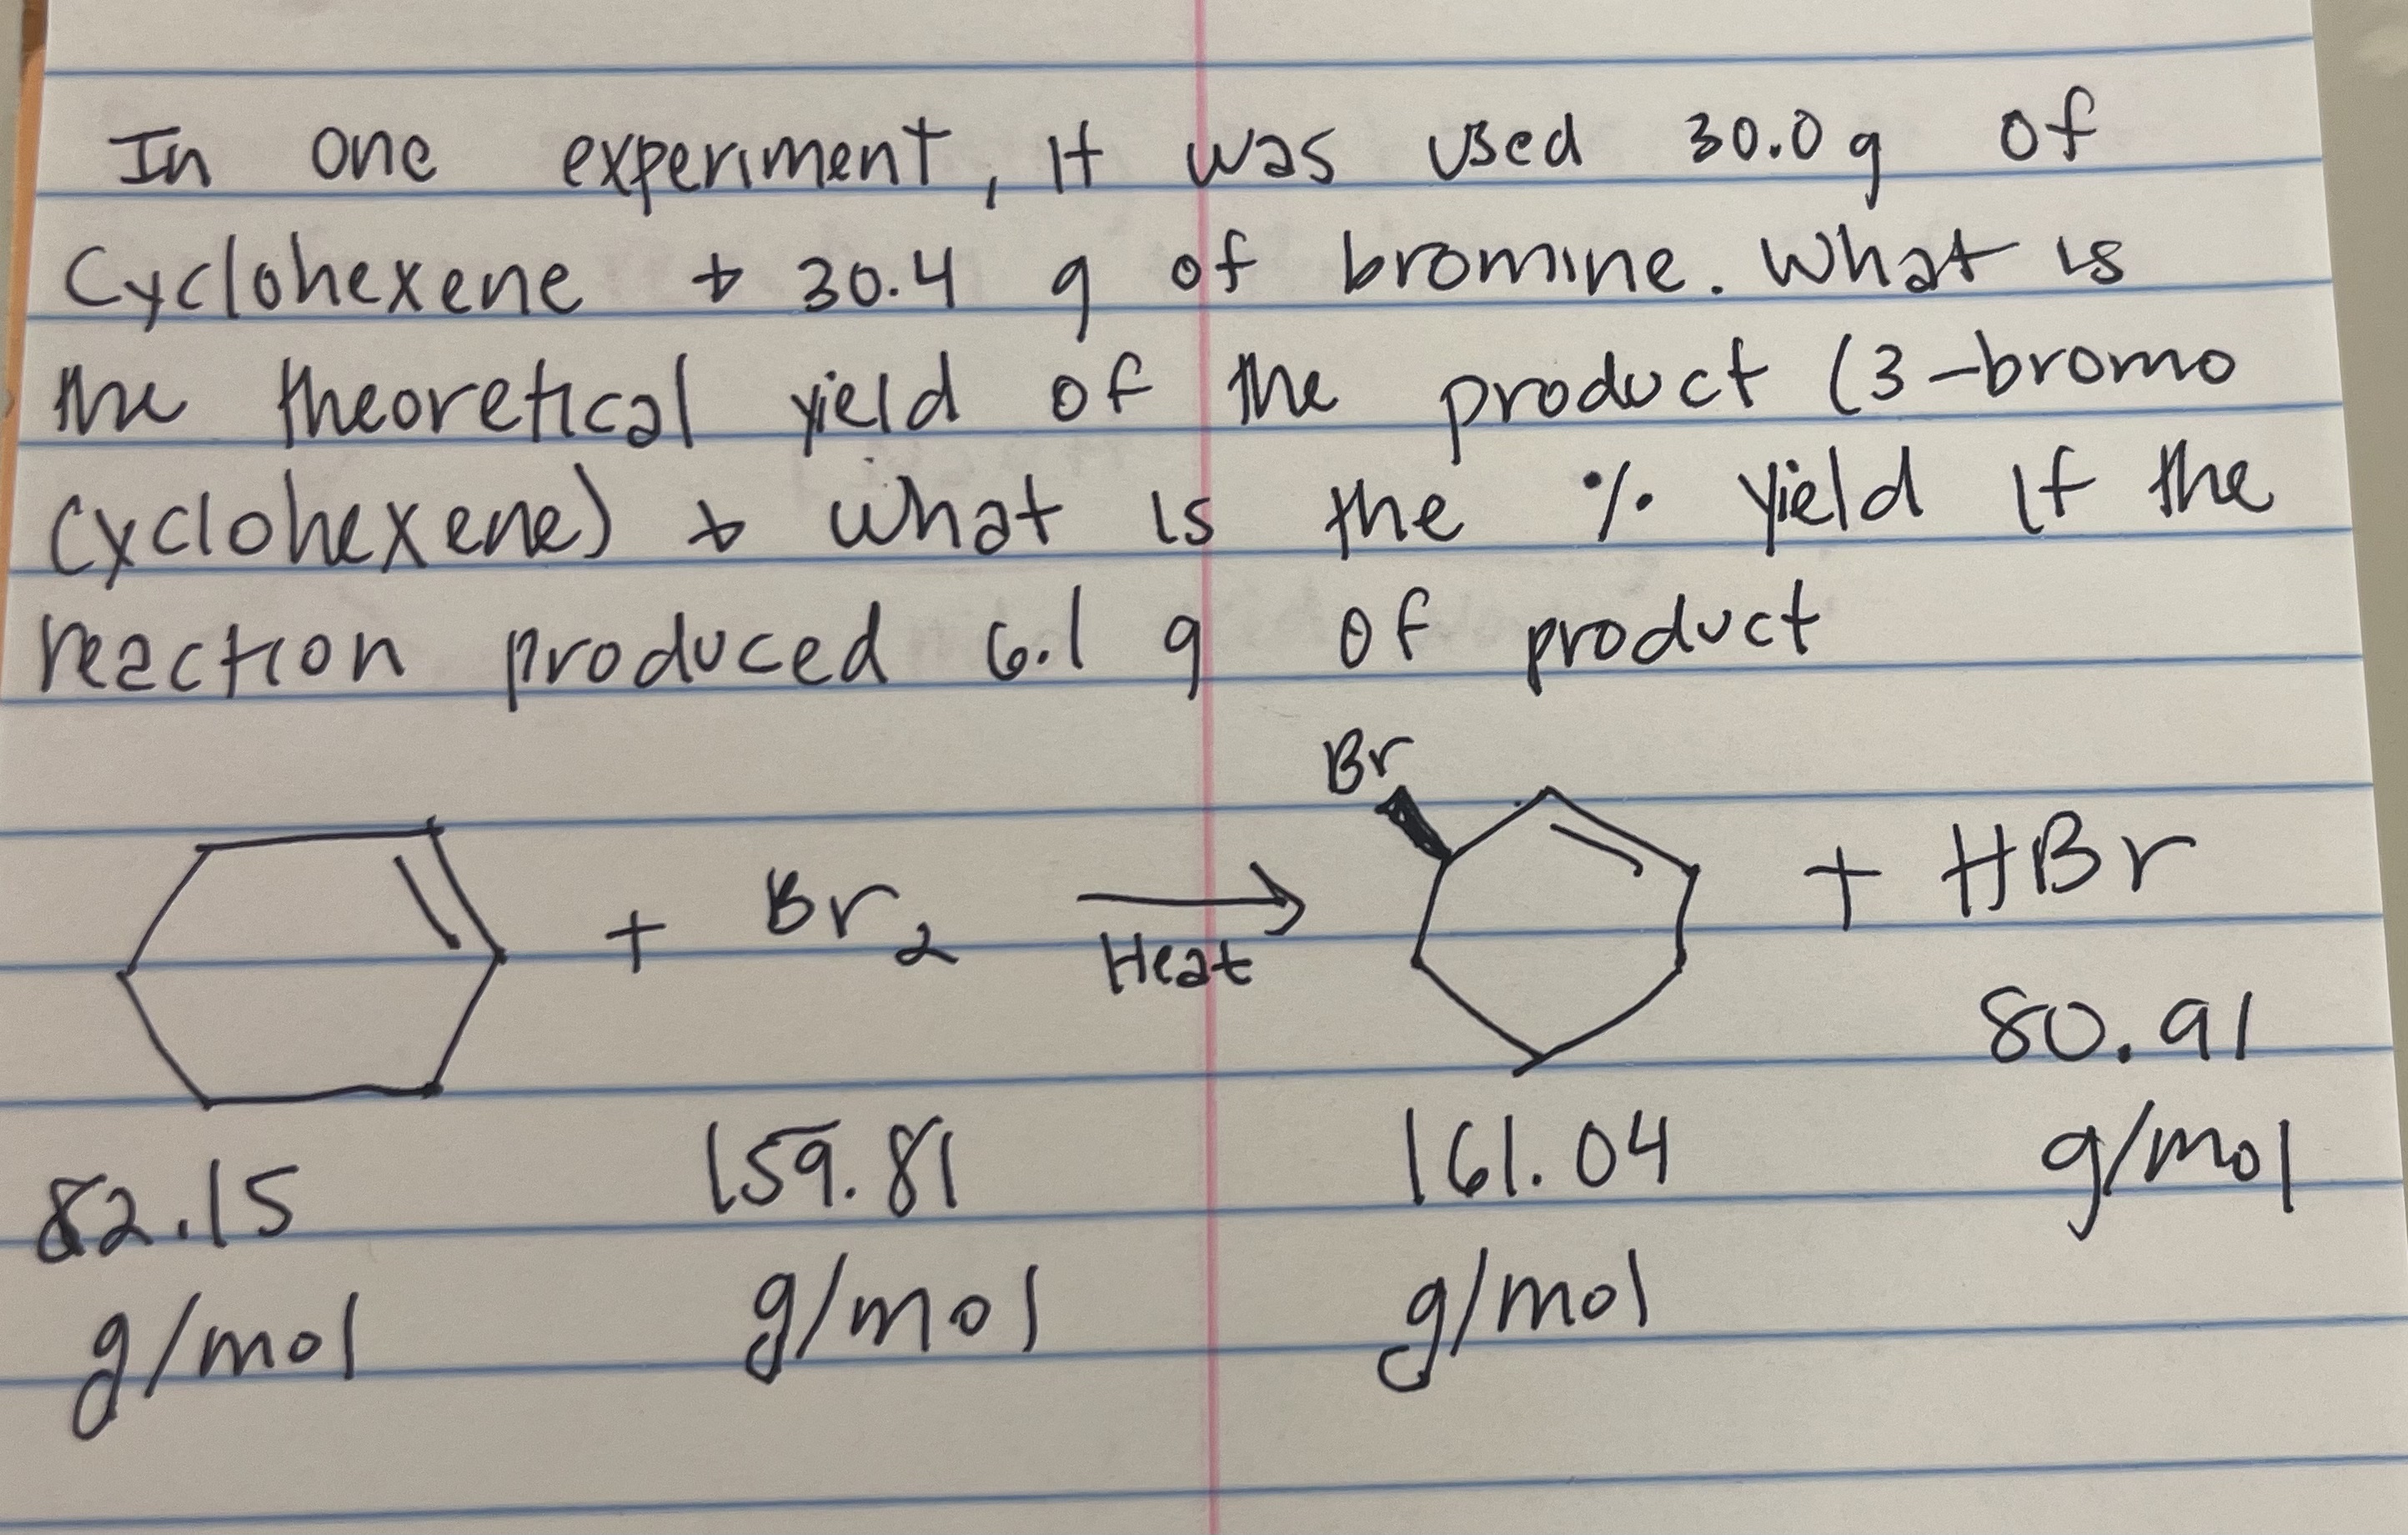 In one experiment, it was used 30.0 g of
Cyclohexene & 30.4 g of bromine. What is
the theoretical yield of the product (3-bromo
cyclohexene) & what is the % yield if the
reaction produced 6.1 g of product
Br
+ Br2 → Heat + HBr
80.91
g/mol
82.15 159.81 161.04
g/mol g/mol g/mol